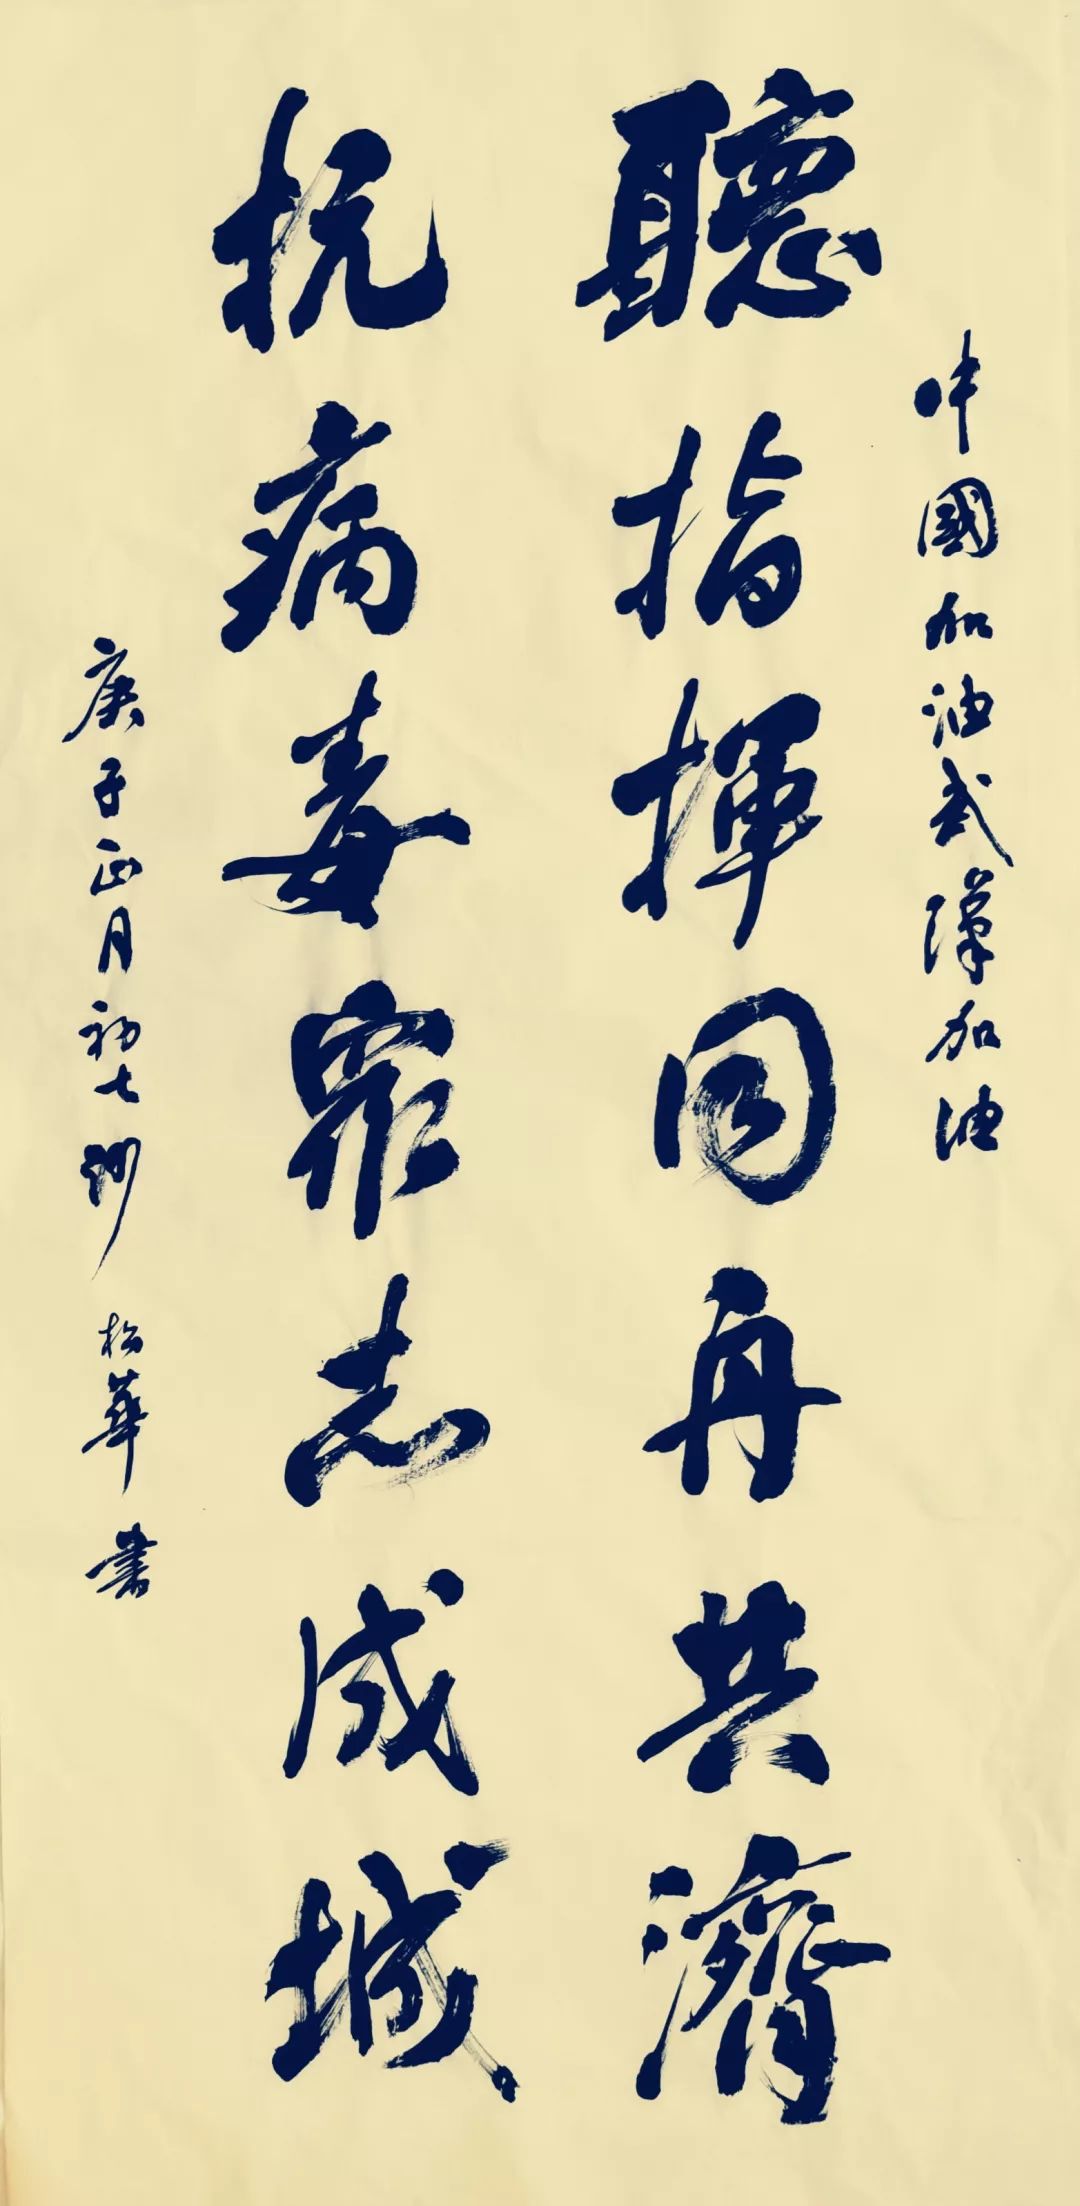 中國加油武漢加油
聽指揮同舟共濟
抗病毒眾志成城
庚子正月初七 松華書